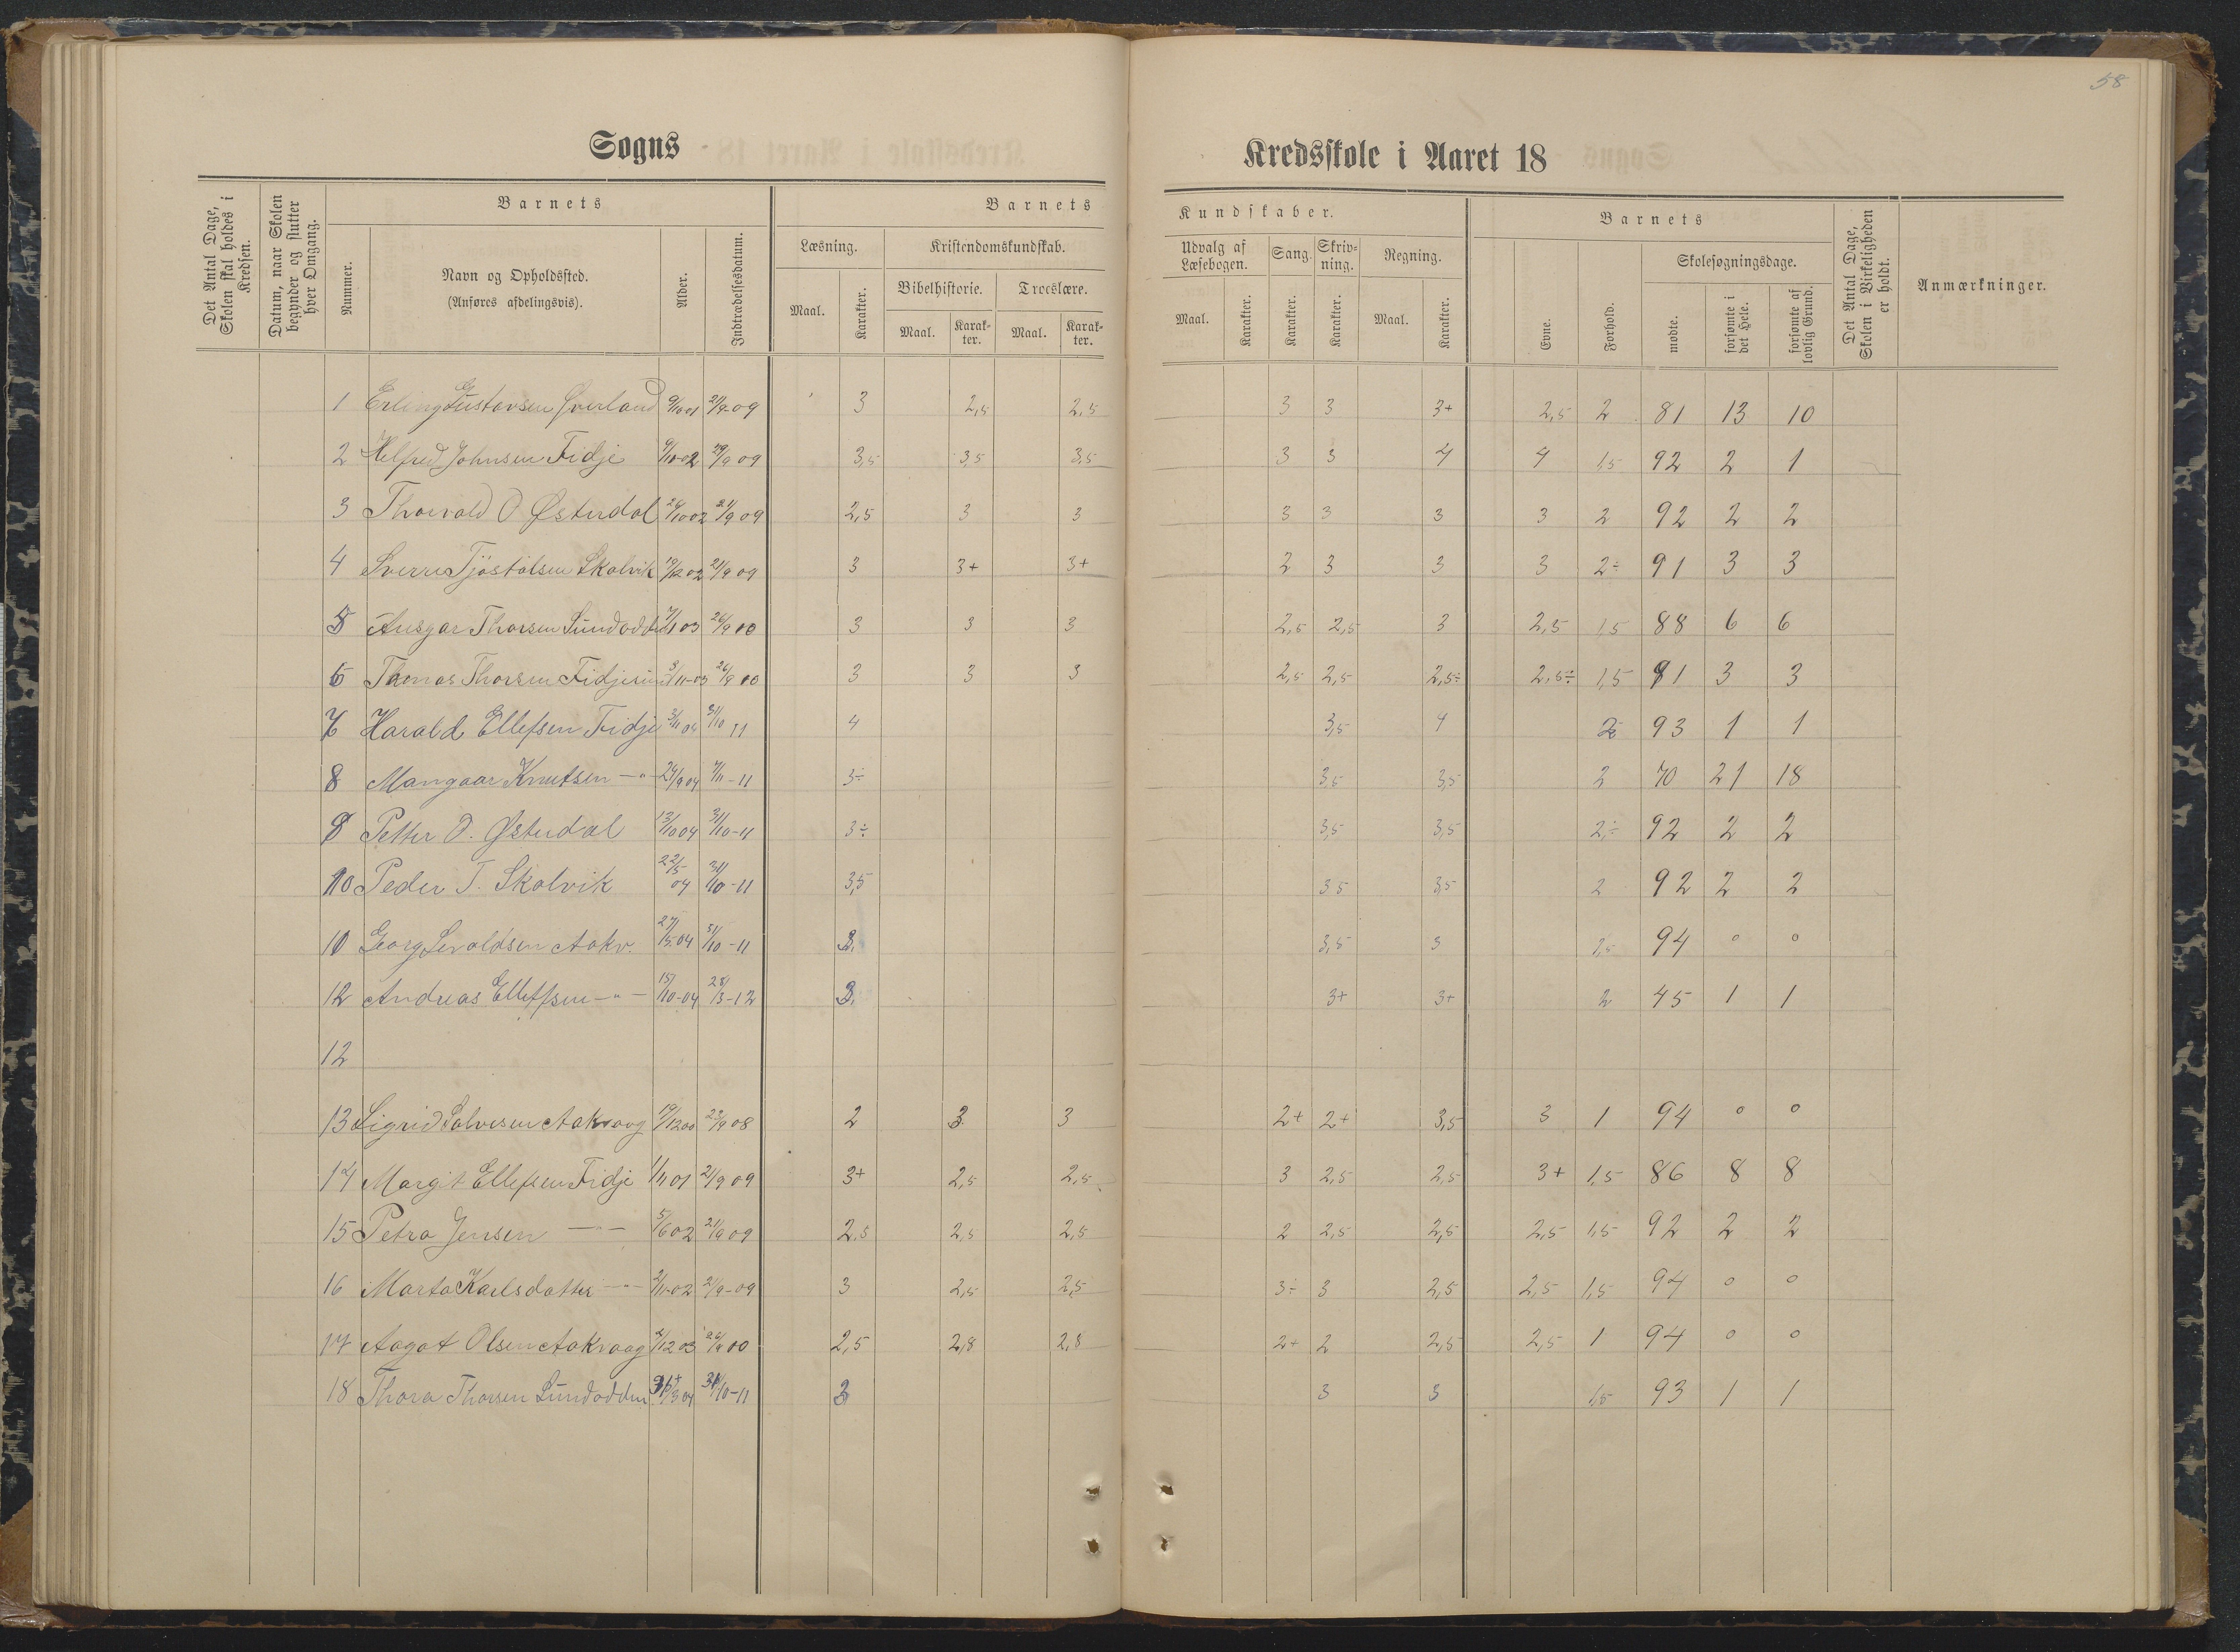 58
Sogns
Kredsskole i Aaret 18
Det Antal Dage, Skolen skal holdes i Kredsen.
Datum, naar Skolen begynder og slutter hver Omgang.
Barnets
Nummer.
Navn og Opholdssted.
(Anføres afdelingsvis).
Alder.
Indtrædelsesdatum.
Barnets
Læsning.
Maal.
Karakter.
Kristendomskundskab.
Bibelhistorie.
Troeslære.
Maal.
Karakter.
Maal.
Karakter.
Kundskaber.
Udvalg af Læsebogen.
Sang.
Skrivning.
Regning.
Maal.
Karakter.
Karakter.
Karakter.
Maal.
Karakter.
Barnets
Evne.
Forhold.
Skolesøgningsdage.
mødte.
forsømte i det Hele.
forsømte af lovlig Grund.
Det Antal Dage, Skolen i Virkeligheden er holdt.
Anmærkninger.
1 Erling Gustavsen Øverland 9/10 01 21/9-09 3 2,5 2,5 3 3 3+ 2,5 2 81 13 10
2 Helfred Johnsen Fidje 9/10-02 29/9 09 3,5 3,5 3,5 3 3 4 4 1,5 92 2 1
3 Thorvald O Østerdal 28/10 02 21/9 09 2,5 3 3 3 3 3 3 2 92 2 2
4 Sverre Tjöstolsen Skolvik 19/12 02 21/9 09 3 3+ 3+ 2 3 3 3 2÷ 91 3 3
5 Ansgar Thorsen Sundodden 7/1 03 26/9 10 3 3 3 2,5 2,5 3 2,5 1,5 88 6 6
6 Tomas Thorsen 3/11-03 26/9 10 3 3 3 2,5 2,5 2,5÷ 2,5÷ 1,5 91 3 3
7 Harald Ellefsen Fidje 3/11 04 31/10 11 4 3,5 4 2 93 1 1
8 Mangaar Knutsen -"- 24/9 04 7/11-11 3÷ 3,5 3,5 2 70 21 18
9 Petter O. Østerdal 13/10 04 31/10-11 3÷ 3,5 3,5 2÷ 92 2 2
10 Peder T. Skolvik 22/5 04 31/10-11 3,5 3,5 3,5 2 92 2 2
10 Georg Sevaldsen Aakv. 27/5-04 31/10-11 3. 3,5 3 1,5 94 0 0
12 Andreas Elleffsen -"- 15/10-04 28/3-12 3. 3+ 3+ 2 45 1 1
12
13 Sigrid Salvesen Aakvaag 19/12 00 23/9 08 2 3. 3 2+ 2+ 3,5 3 1 94 0 0
14 Margit Ellefsen Fidje 1/11 01 21/9 09 3+ 2,5 2,5 3 2,5 2,5 3+ 1,5 86 8 8
15 Petra Jensen -"- 5/6 02 21/9 09 2,5 2,5 2,5 2 2,5 2,5 2,5 1,5 92 2 2
16 Marta Karlsdatter -"- 2/11-02 21/9-09 3 2,5 2,5 3÷ 3 2,5 2,5 1,5 94 0 0
17 Aagot Olsen Aakvaag 2/12 03 26/9 10 2,5 2,8 2,8 2+ 2 2,5 2,5 1 94 0 0
18 Thora Thorsen Sundodden 31/10-11 3 3 3 1,5 93 1 1